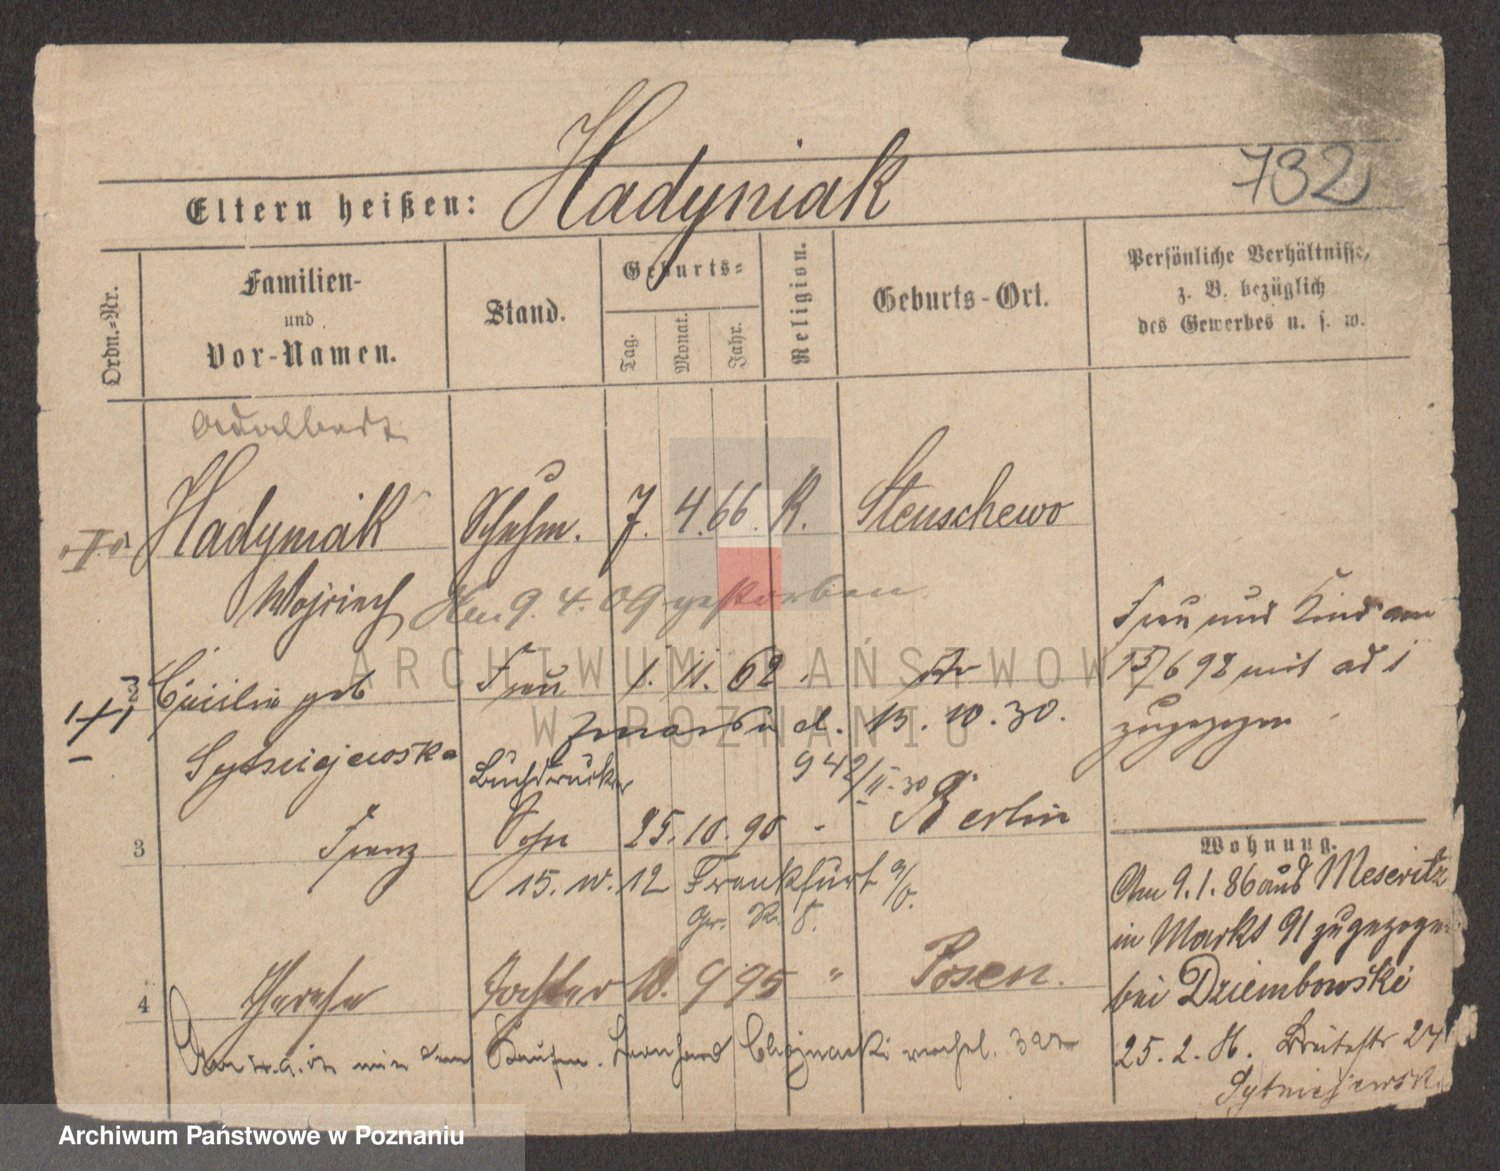 732
Eltern heißen: Hadyniak
Ordn.=Nr.
Familien-
und
Vor-Namen.
Stand.
Geburts=
Tag.
Monat.
Jahr.
Religion.
Geburts-Ort.
Persönliche Verhältnisse,
z. B. bezüglich
des Gewerbes u. s. w.
Adalbert
Hadyniak Schuhm. 7. 4. 66. K. Stenschewo
Wojciech Am 9. 4. 09 gestorben
Frau und Kind am
Cäcilie geb Frau 1. 11. 62.
13/6 92 mit ad 1
zugezogen
zmarła d. 13. 10. 30.
Sytniejewska Buchdrucker 942/II.30
3 Franz Sohn 25. 10. 90 - Berlin
15. 10. 12 Frankfurt a/O.
4 Therese Tochter 10. 9 95 " Posen.
Kaufm. Leonhard Chojnacki
Wohnung.
Am 9. 1. 86 aus Meseritz
in Markt 91 zugezogen
bei Dziembowski
25. 2. 86. Breitestr 27
Sytniejewsk
ARCHIWUM PAŃSTWOWE
W POZNANIU
Archiwum Państwowe w Poznaniu